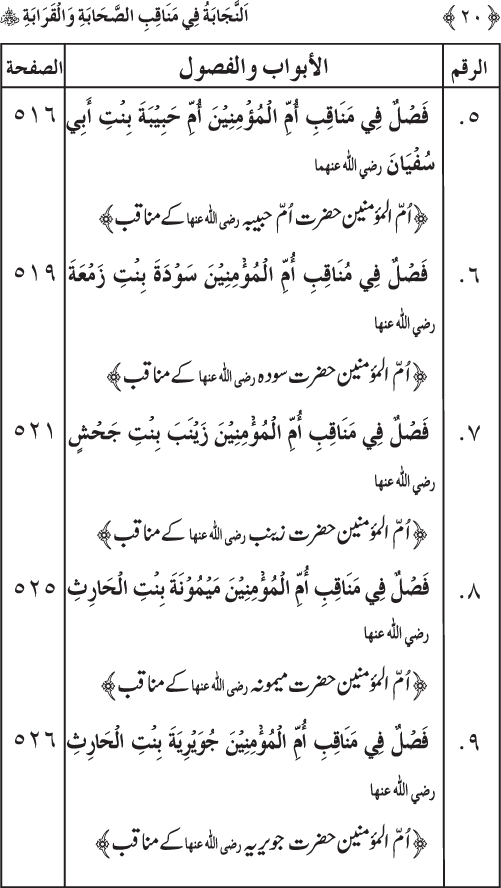 ﴿٢٠﴾ اَلنَّجَابَةُ فِي مَنَاقِبِ الصَّحَابَةِ وَالْقَرَابَةِ ﷺ
الرقم الأبواب والفصول الصفحة
٥. فَصْلٌ فِي مَنَاقِبِ أُمِّ الْمُؤْمِنِيْنَ أُمِّ حَبِيْبَةَ بِنْتِ أَبِي ٥١٦
سُفْيَانَ رضي الله عنهما
﴿اُمّ المؤمنین حضرت اُمّ حبیبہ رضي الله عنها کے مناقب﴾
٦. فَصْلٌ فِي مُنَاقِبِ أُمِّ الْمُؤْمِنِيْنَ سَوْدَةَ بِنْتِ زَمْعَةَ ٥١٩
رضي الله عنها
﴿اُمّ المؤمنین حضرت سودہ رضي الله عنها کے مناقب﴾
٧. فَصْلٌ فِي مَنَاقِبِ أُمِّ الْمُؤْمِنِيْنَ زَيْنَبَ بِنْتِ جَحْشٍ ٥٢١
رضي الله عنها
﴿اُمّ المؤمنین حضرت زینب رضي الله عنها کے مناقب﴾
٨. فَصْلٌ فِي مَنَاقِبِ أُمِّ الْمُؤْمِنِيْنَ مَيْمُوْنَةَ بِنْتِ الْحَارِثِ ٥٢٥
رضي الله عنها
﴿اُمّ المؤمنین حضرت میمونہ رضي الله عنها کے مناقب﴾
٩. فَصْلٌ فِي مَنَاقِبِ أُمِّ الْمُؤْمِنِيْنَ جُوَيْرِيَةَ بِنْتِ الْحَارِثِ ٥٢٦
رضي الله عنها
﴿اُمّ المؤمنین حضرت جویریہ رضي الله عنها کے مناقب﴾